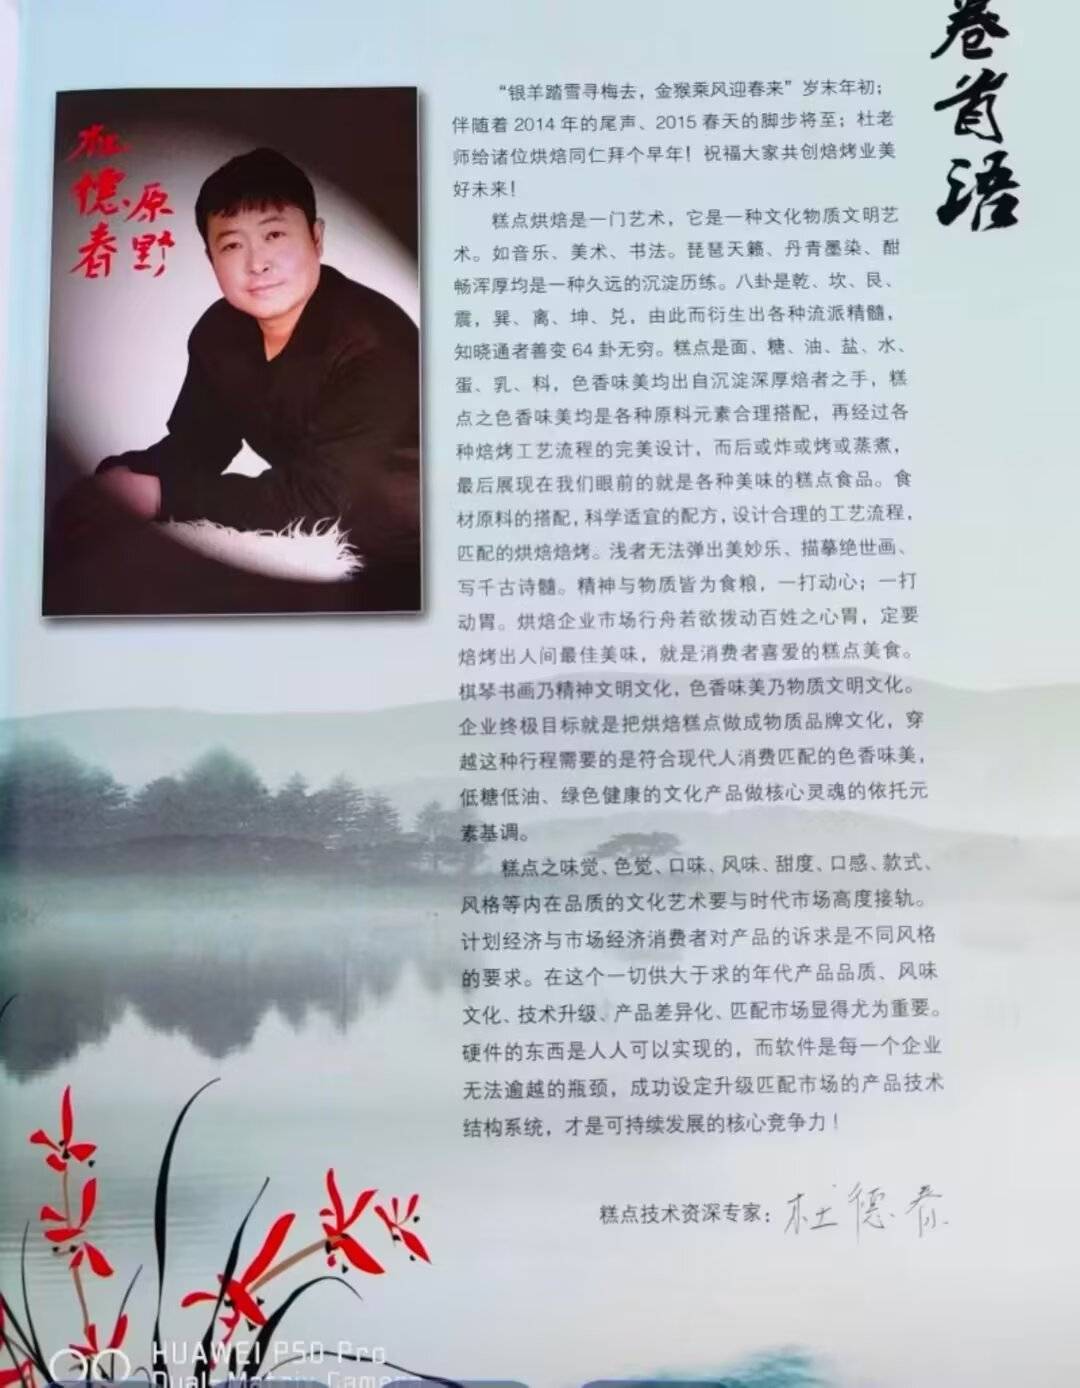 卷首语
杜德春
原野
“银羊踏雪寻梅去，金猴乘风迎春来”岁末年初；
伴随着 2014 年的尾声、2015 春天的脚步将至；杜老
师给诸位烘焙同仁拜个早年！祝福大家共创焙烤业美
好未来！
糕点烘焙是一门艺术，它是一种文化物质文明艺
术。如音乐、美术、书法。琵琶天籁、丹青墨染、酣
畅浑厚均是一种久远的沉淀历练。八卦是乾、坎、艮、
震，巽、离、坤、兑，由此而衍生出各种流派精髓，
知晓通者善变 64 卦无穷。糕点是面、糖、油、盐、水、
蛋、乳、料，色香味美均出自沉淀深厚焙者之手，糕
点之色香味美均是各种原料元素合理搭配，再经过各
种焙烤工艺流程的完美设计，而后或炸或烤或蒸煮，
最后展现在我们眼前的就是各种美味的糕点食品。食
材原料的搭配，科学适宜的配方，设计合理的工艺流程，
匹配的烘焙焙烤。浅者无法弹出美妙乐、描摹绝世画、
写千古诗髓。精神与物质皆为食粮，一打动心；一打
动胃。烘焙企业市场行舟若欲拨动百姓之心胃，定要
焙烤出人间最佳美味，就是消费者喜爱的糕点美食。
棋琴书画乃精神文明文化，色香味美乃物质文明文化。
企业终极目标就是把烘焙糕点做成物质品牌文化，穿
越这种行程需要的是符合现代人消费匹配的色香味美，
低糖低油、绿色健康的文化产品做核心灵魂的依托元
素基调。
糕点之味觉、色觉、口味、风味、甜度、口感、款式、
风格等内在品质的文化艺术要与时代市场高度接轨。
计划经济与市场经济消费者对产品的诉求是不同风格
的要求。在这个一切供大于求的年代产品品质、风味
文化、技术升级、产品差异化、匹配市场显得尤为重要。
硬件的东西是人人可以实现的，而软件是每一个企业
无法逾越的瓶颈，成功设定升级匹配市场的产品技术
结构系统，才是可持续发展的核心竞争力！
糕点技术资深专家：杜德春
HUAWEI P50 Pro
Dual-Matrix Camera